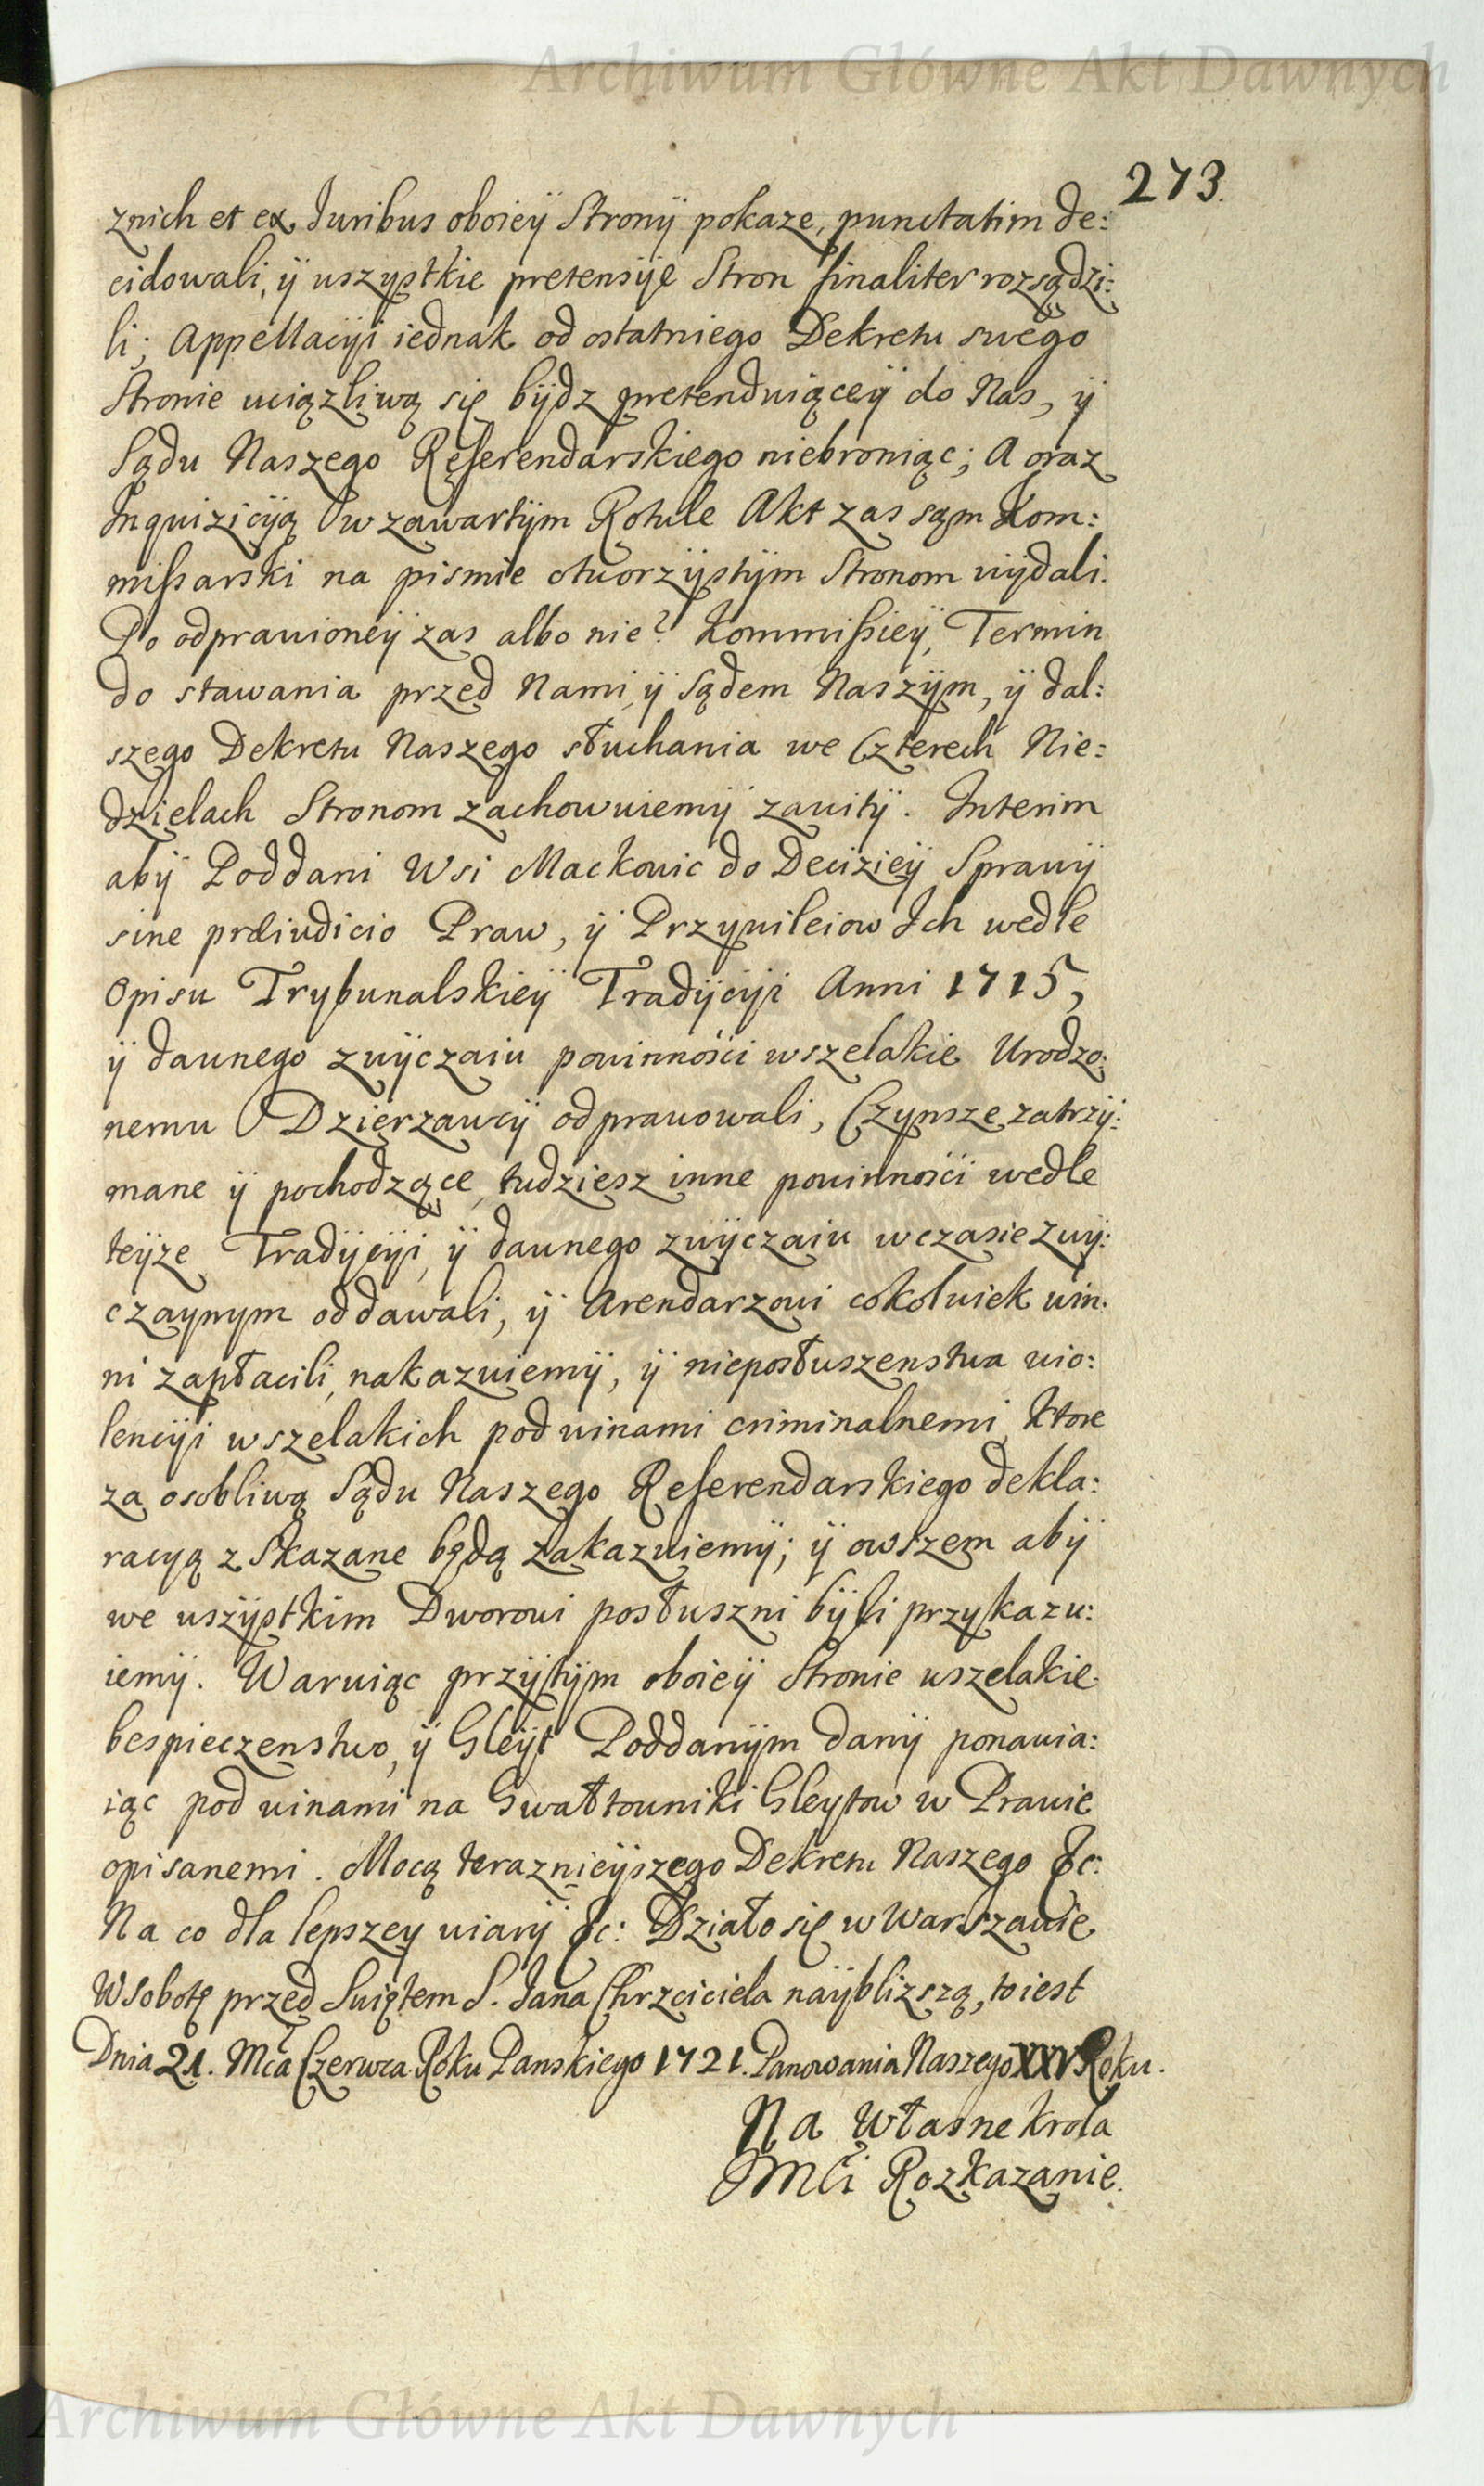 Archiwum Główne Akt Dawnych
273.
znich et ex Juribus oboieÿ Stronÿ pokaze, punctatim de:
cidowali, ÿ wszystkie pretensÿe Stron finaliter rozsądzi:
li; Appellacÿi iednak od ostatniego Dekretu swego
Stronie uciązliwą się bÿdz pretenduiąceÿ do Nas, ÿ
Sądu Naszego Referendarskiego niebroniąc; A oraz
Inquizicÿą w zawartÿm Rotule Akt zas sąm Kom:
missarski na pismie otworzÿstÿm Stronom wÿdali.
Po odprawioneÿ zas albo nie? Kommissieÿ, Termin
do stawania przed Nami, ÿ Sądem Naszÿm, ÿ dal:
szego Dekretu Naszego słuchania we Czterech Nie:
dzielach Stronom zachowuiemÿ zawitÿ. Interim
abÿ Poddani Wsi Mackowic do Decizieÿ Sprawÿ
sine præiudicio Praw, ÿ Przywileiow Ich wedle
Opisu Trybunalskieÿ Tradÿcÿi Anni 1715,
ÿ dawnego zwÿczaiu powinności wszelakie Urodzo:
nemu Dzierzawcÿ odprawowali, Czynsze zatrzÿ:
mane ÿ pochodzące, tudziesz inne powinności wedle
teÿze Tradÿcÿi, ÿ dawnego zwÿczaiu w czasie zwÿ:
czaynym oddawali, ÿ Arendarzowi cokolwiek win:
ni zapłacili, nakazuiemÿ, ÿ nieposłuszenstwa wio:
lencÿi wszelakich pod winami criminalnemi, ktore
za osobliwą Sądu Naszego Referendarskiego dekla:
racyą zskazane będą zakazuiemÿ; ÿ owszem abÿ
we wszÿstkim Dworowi posłuszni bÿli przykazu:
iemÿ. Waruiąc przÿtÿm oboieÿ Stronie wszelakie
bespieczenstwo, ÿ Gleÿt Poddanÿm danÿ ponawia:
iąc pod winami na Gwałtowniki Gleytow w Prawie
opisanemi. Mocą teraznieÿszego Dekretu Naszego &c:
Na co dla lepszey wiarÿ &c: Działo się w Warszawie
W Sobotę przed Swiętem S. Jana Chrzciciela naÿblizszą, to iest
Dnia 21. Mca Czerwca Roku Panskiego 1721. Panowania Naszego XXV Roku.
Na Własne Krola
JMCi Rozkazanie.
Archiwum Główne Akt Dawnych